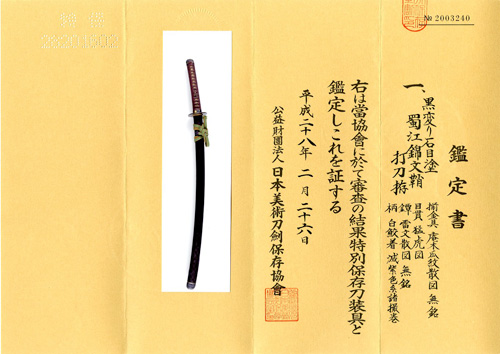 № 2003240
鑑定書
一、黒変り石目塗
蜀江錦文鞘 打刀拵
揃金具 唐木瓜紋散図 無銘
目貫 猛虎図
鐔 雷文散図 無銘
柄 白鮫着 滅紫色糸諸撮巻
右は當協會に於て審査の結果特別保存刀装具と
鑑定しこれを証する
平成二十八年 二月 二十六日
公益財團法人 日本美術刀劍保存協會